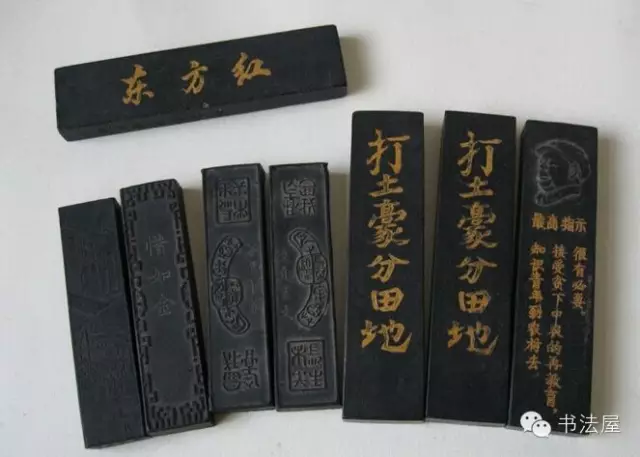 东方红
惜如金
打土豪分田地
打土豪分田地
最高指示
知识青年到农村去
接受贫下中农的再教育，
很有必要。
书法屋